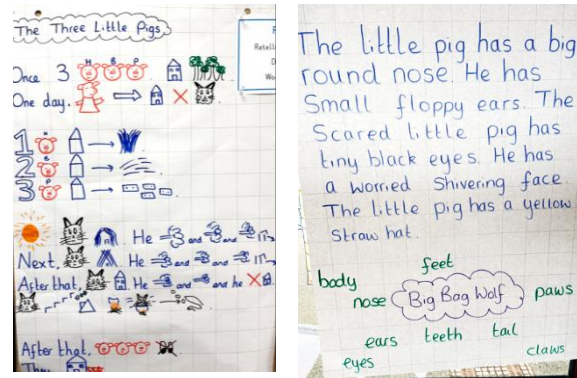 The Three Little Pigs
Once 3 H B P
One day,
1 H
2 B
3 P
He and and
Next, He and and
After that, He and and he
After that,
The little pig has a big
round nose. He has
Small floppy ears. The
Scared little pig has
tiny black eyes. He has
a worried shivering face
The little pig has a yellow
Straw hat.
feet
body
nose Big Bag Wolf paws
ears teeth tail
eyes claws